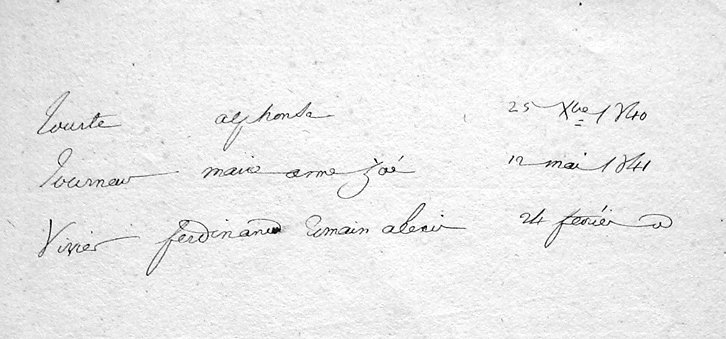 Tourte alphonse 25 Xbre 1840
Tournau marie anne Zoé 12 mai 1841
Vivier ferdinand Romain alexis 24 fevrier d